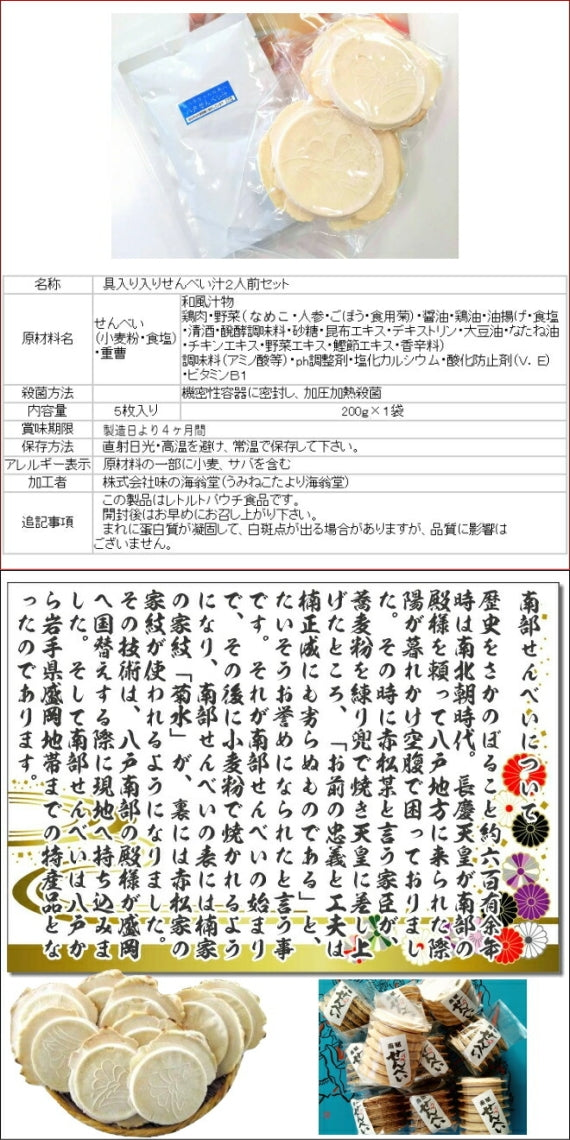 八戸せんべい汁
名称
具入り入りせんべい汁2人前セット
原材料名
せんべい
(小麦粉・食塩)
・重曹
和風汁物
鶏肉・野菜(なめこ・人参・ごぼう・食用菊)・醤油・鶏油・油揚げ・食塩
・清酒・醗酵調味料・砂糖・昆布エキス・デキストリン・大豆油・なたね油
・チキンエキス・野菜エキス・鰹節エキス・香辛料)
調味料(アミノ酸等)・ph調整剤・塩化カルシウム・酸化防止剤(V.E)
・ビタミンB1
殺菌方法
機密性容器に密封し、加圧加熱殺菌
内容量
5枚入り
200g×1袋
賞味期限
製造日より4ヶ月間
保存方法
直射日光・高温を避け、常温で保存して下さい。
アレルギー表示
原材料の一部に小麦、サバを含む
加工者
株式会社味の海翁堂(うみねこたより海翁堂)
追記事項
この製品はレトルトパウチ食品です。
開封後はお早めにお召し上がり下さい。
まれに蛋白質が凝固して、白斑点が出る場合がありますが、品質に影響は
ございません。
南部せんべいについて
歴史をさかのぼること約六百有余年
時は南北朝時代。長慶天皇が南部の
殿様を頼って八戸地方に来られた際
陽が暮れかけ空腹で困っておりまし
た。その時に赤松某と言う家臣が、
蕎麦粉を練り兜で焼き天皇に差し上
げたところ、「お前の忠義と工夫は
楠正成にも劣らぬものである」と、
たいそうお誉めになられたと言う事
です。それが南部せんべいの始まり
で、その後に小麦粉で焼かれるよう
になり、南部せんべいの表には楠家
の家紋「菊水」が、裏には赤松家の
家紋が使われるようになりました。
その技術は、八戸南部の殿様が盛岡
へ国替えする際に現地へ持ち込みま
した。そして南部せんべいは八戸か
ら岩手県盛岡地帯までの特産品とな
ったのであります。
南部
せんべい
せんべい
せんべい
せんべい